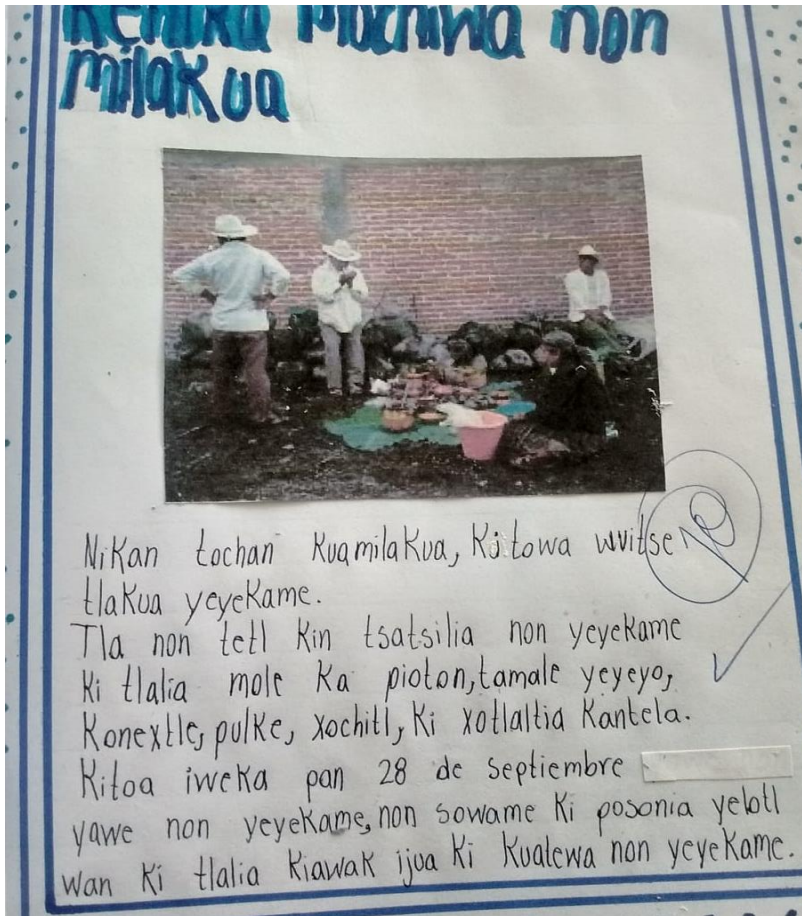 Kenika mochiwa non
milakua
Nikan tochan kuamilakua, kitowa wvitse
tlakua yeyekame.
Tla non tetl kin tsatsilia non yeyekame
ki tlalia mole ka pioton, tamale yeyeyo,
Konextle, pulke, xochitl, ki xotlaltia kantela.
Kitoa iweka pan 28 de septiembre
yawe non yeyekame, non sowame ki posonia yelotl
wan ki tlalia kiawak ijua ki kualewa non yeyekame.